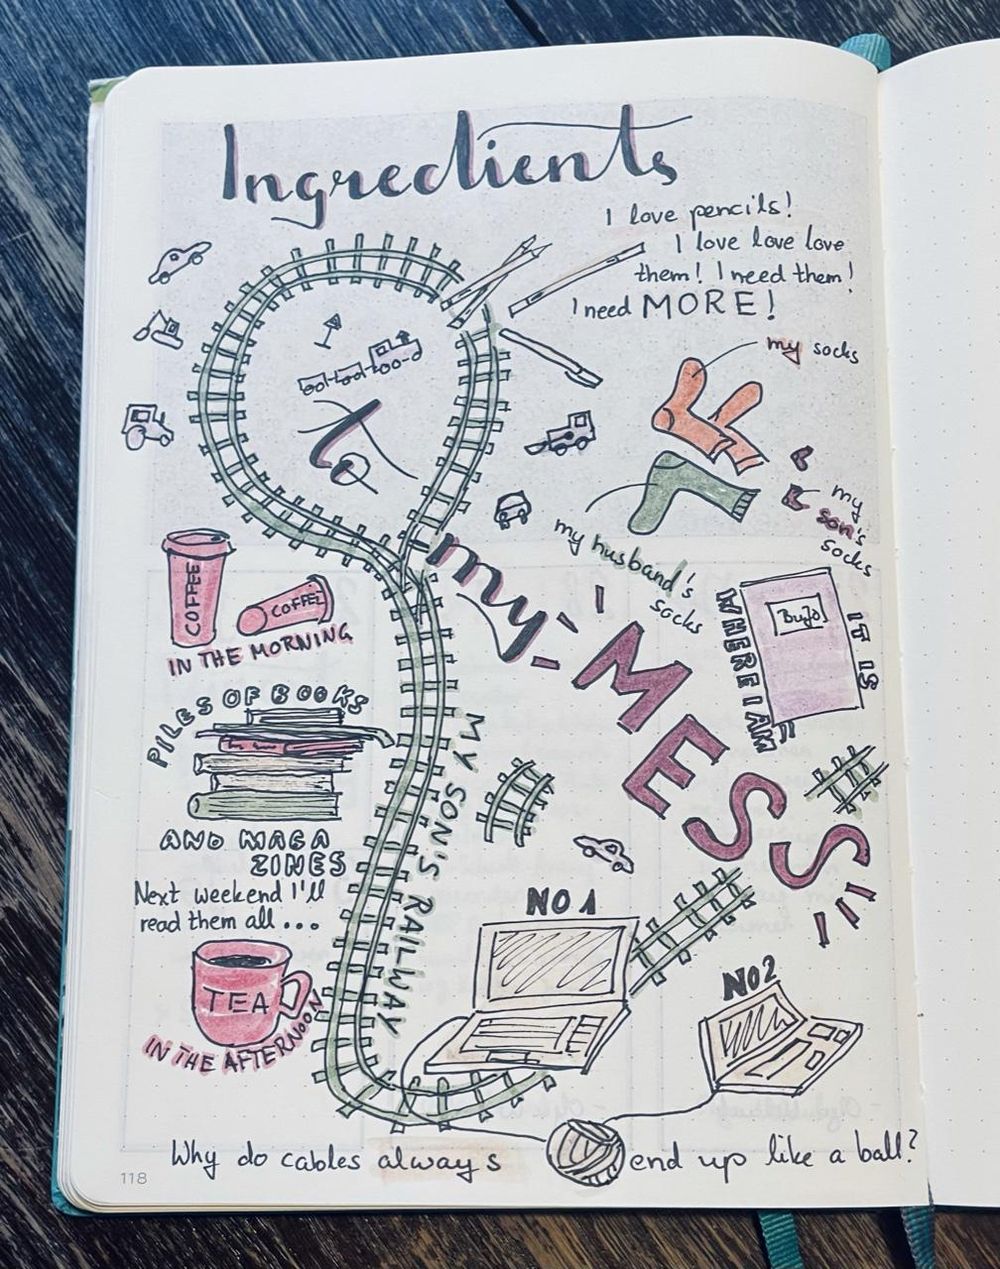 Ingredients
I love pencils!
I love love love
them! I need them!
I need MORE!
to
my
MESS
my socks
my husband's
socks
my
son's
socks
COFFEE
COFFEE
IN THE MORNING
WHERE I AM
BuJo
IT IS
PILES OF BOOKS
AND MAGA
ZINES
Next weekend I'll
read them all...
MY SON'S RAILWAY
TEA
IN THE AFTERNOON
NO 1
NO 2
Why do cables always end up like a ball?
118